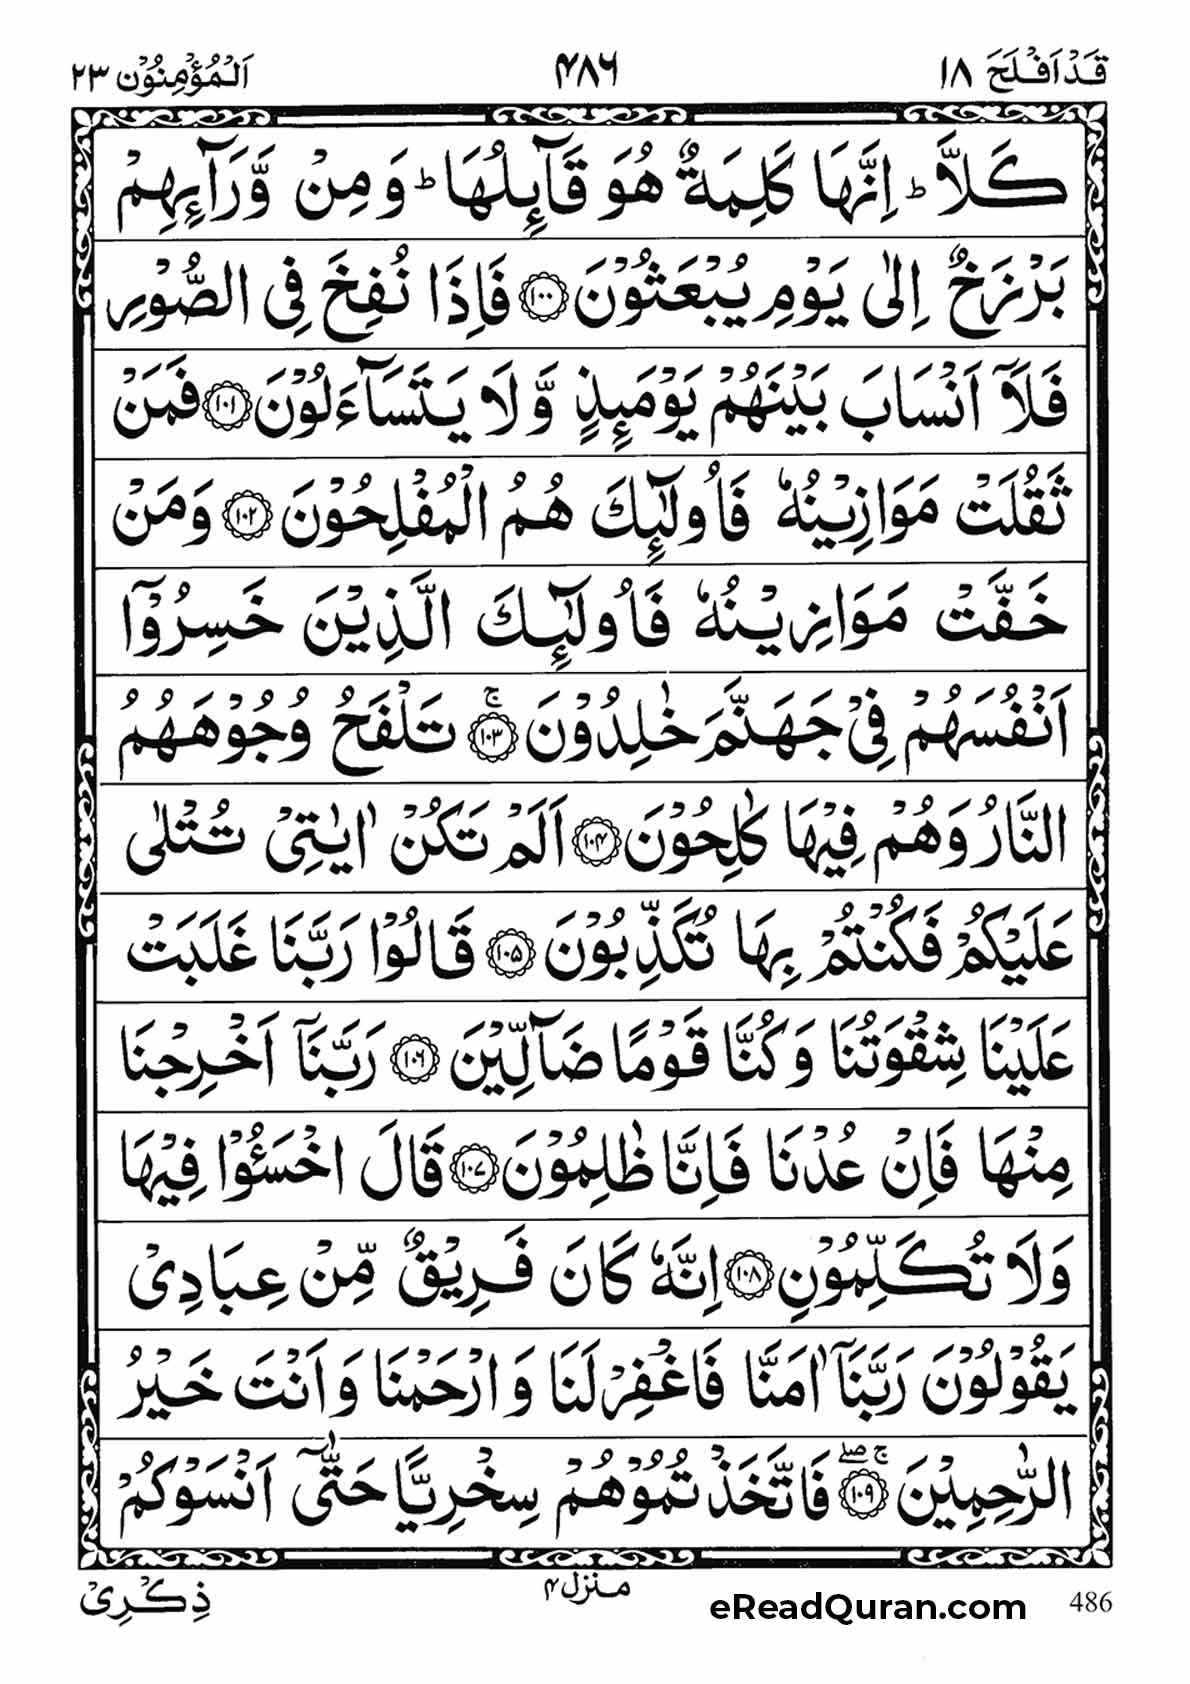 قَدْ اَفْلَحَ ١٨ ۴٨۶ اَلْمُؤْمِنُوْن ٢٣
كَلَّا ؕ اِنَّهَا كَلِمَةٌ هُوَ قَآئِلُهَا ؕ وَ مِنْ وَّرَآئِهِمْ
بَرْزَخٌ اِلٰى يَوْمِ يُبْعَثُوْنَ ﴿١٠٠﴾ فَاِذَا نُفِخَ فِى الصُّوْرِ
فَلَآ اَنْسَابَ بَيْنَهُمْ يَوْمَئِذٍ وَّ لَا يَتَسَآءَلُوْنَ ﴿١٠١﴾ فَمَنْ
ثَقُلَتْ مَوَازِيْنُهٗ فَاُولٰٓئِكَ هُمُ الْمُفْلِحُوْنَ ﴿١٠٢﴾ وَمَنْ
خَفَّتْ مَوَازِيْنُهٗ فَاُولٰٓئِكَ الَّذِيْنَ خَسِرُوْٓا
اَنْفُسَهُمْ فِىْ جَهَنَّمَ خٰلِدُوْنَ ﴿١٠٣﴾ ۚ تَلْفَحُ وُجُوْهَهُمُ
النَّارُ وَهُمْ فِيْهَا كٰلِحُوْنَ ﴿١٠۴﴾ اَلَمْ تَكُنْ اٰيٰتِىْ تُتْلٰى
عَلَيْكُمْ فَكُنْتُمْ بِهَا تُكَذِّبُوْنَ ﴿١٠۵﴾ قَالُوْا رَبَّنَا غَلَبَتْ
عَلَيْنَا شِقْوَتُنَا وَكُنَّا قَوْمًا ضَآلِّيْنَ ﴿١٠۶﴾ رَبَّنَآ اَخْرِجْنَا
مِنْهَا فَاِنْ عُدْنَا فَاِنَّا ظٰلِمُوْنَ ﴿١٠٧﴾ قَالَ اخْسَئُوْا فِيْهَا
وَلَا تُكَلِّمُوْنِ ﴿١٠٨﴾ اِنَّهٗ كَانَ فَرِيْقٌ مِّنْ عِبَادِىْ
يَقُوْلُوْنَ رَبَّنَآ اٰمَنَّا فَاغْفِرْ لَنَا وَ ارْحَمْنَا وَ اَنْتَ خَيْرُ
الرّٰحِمِيْنَ ﴿١٠٩﴾ ۚ ۖ فَاتَّخَذْتُمُوْهُمْ سِخْرِيًّا حَتّٰٓى اَنْسَوْكُمْ
ذِكْرِىْ
منزل ۴
eReadQuran.com 486